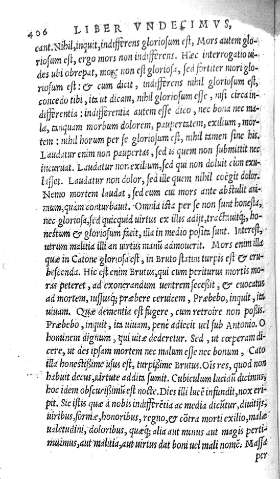 406 LIBER VNDECIMVS,
cant. Nihil, inquit, indifferens gloriosum est, Mors autem glo-
riosum est, ergo mors non indifferens. Hæc interrogatio ui-
des ubi obrepat, mors non est gloriosa, sed fortiter mori glo-
riosum est: & cum dicit, indifferens nihil gloriosum est,
concedo tibi, ita ut dicam, nihil gloriosum esse, nisi circa in-
differentia: indifferentia autem esse dico, nec bona nec ma-
la, tanquam morbum dolorem, paupertatem, exilium, mor-
tem: nihil horum per se gloriosum est, nihil tamen sine his.
Laudatur enim non paupertas, sed is quem non submittit nec
incuruat. Laudatur non exilium, sed qui non doluit
Laudatur non dolor, sed ille quem nihil coëgit dolor.
Nemo mortem laudat, sed eum cui mors ante abstulit ani-
mum, quàm conturbauit. Omnia ista per se non sunt honesta,
nec gloriosa, sed quicquid uirtus ex illis adijt, tractauitque, ho-
nestum & gloriosum facit, illa in medio posita sunt. Interest,
utrum malitia illi an uirtus manũ admouerit. Mors enim illa
quæ in Catone gloriosa est, in Bruto statim turpis est & eru-
bescenda. Hic est enim Brutus, qui cum periturus mortis mo-
ras peteret, ad exonerandum uentrem secessit, & euocatus
ad mortem, iussusque præbere ceruicem, Præbebo, inquit, ita
uiuam. Quæ dementia est fugere, cum retroire non possis.
Præbebo, inquit, ita uiuam, penè adiecit uel sub Antonio. O
hominem dignum, qui uitæ dederetur. Sed, ut cœperam di-
cere, ut des ipsam mortem nec malum esse nec bonum, Cato
illa honestissimè usus est, turpissimè Brutus. Ois res, quod non
habuit decus, uirtute addita sumit. Cubiculum lucidũ dicimus,
hoc idem obscurissimũ est nocte. Dies illi lucẽ infundit, nox eri-
pit. Sic istis quæ à nobis indifferẽtia ac media dicũtur, diuitijs,
uiribus, formæ, honoribus, regno, & cõtra morti exilio, malæ
ualetudini, doloribus, quæque alia aut minus aut magis perti-
muimus, aut malitia, aut uirtus dat boni uel mali nomẽ. Massa
per